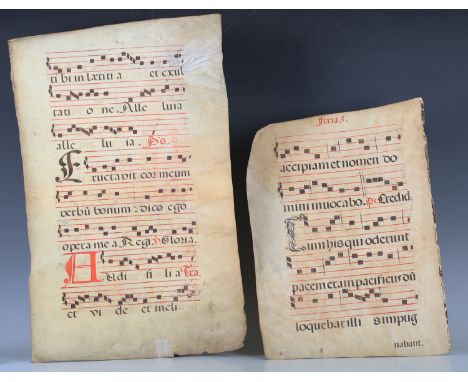 ti bi in lætiti a et exul
tati o ne. Alle luia
alle lu ia. Ps.
Eructavit cor meum
verbũ bonum: dico ego
opera mea Regi. Gloria.
Audi fi li a
et vi de et incli
Feria 5.
accipiam et nomen do
mini invocabo. Ps. Credidi.
Cum his qui oderunt
pacem eram pacificus cũ
loquebar illi s impug
nabant.